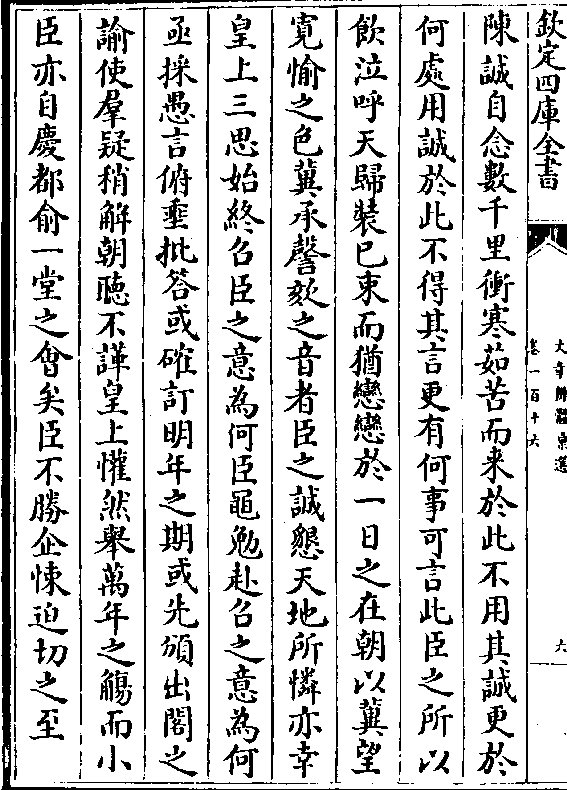 欽定四庫全書
文章辨體彙選
卷一百十六
六
陳誠自念數千里衝寒茹苦而来於此不用其誠更於
何處用誠於此不得其言更有何事可言此臣之所以
飲泣呼天歸裝已束而猶戀戀於一日之在朝以冀望
寛愉之色冀承謦欬之音者臣之誠懇天地所憐亦幸
皇上三思始終召臣之意為何臣黽勉赴召之意為何
亟採愚言俯垂批答或確訂明年之期或先頒出閣之
諭使羣疑稍解朝聽不譁皇上懽然舉萬年之觴而小
臣亦自慶都俞一堂之會矣臣不勝企悚迫切之至